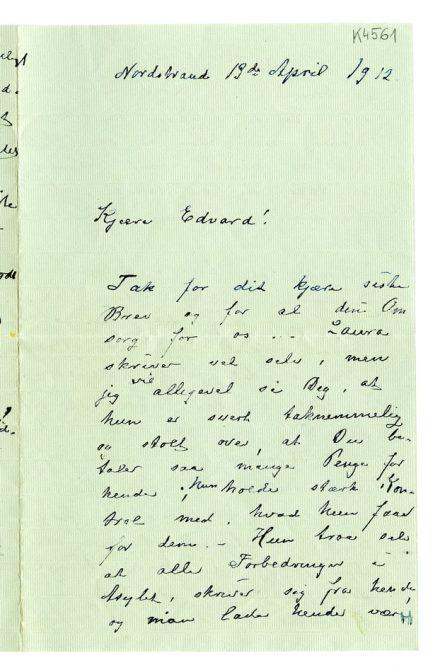 K4561
Nordstrand 19de April 1912
Kjære Edvard!
Tak for dit kjære siste
Brev og for al din Om
sorg for os ... Laura
skriver vel selv, men
jeg vil alligevel si Deg, at
hun er svært taknemmelig
og stolt over, at Du be-
taler saa mange Penge for
hende; hun holder stærk Kon-
trol med, hvad hun faar
for dem. – Hun tror selv
at alle Forbedringer i
Asylet, skriver sig fra hende,
og man lader hende være